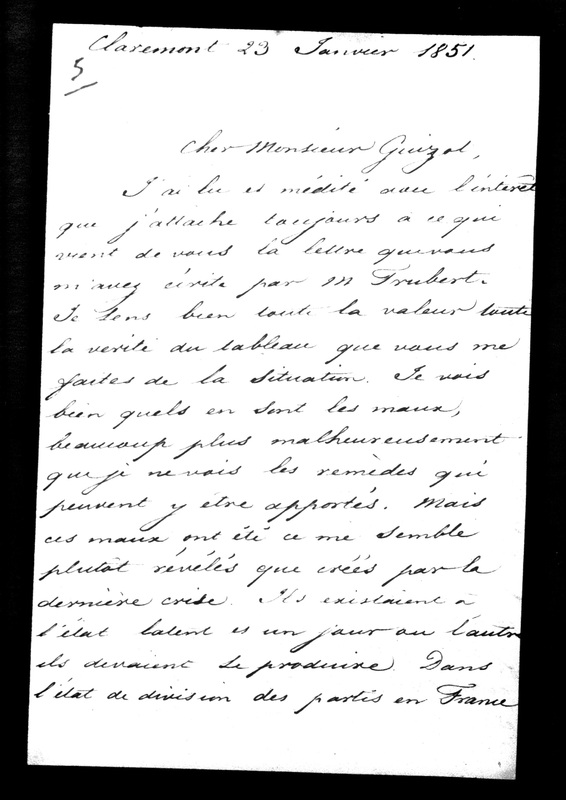 Claremont 23 Janvier 1851
5
Cher Monsieur Guizot,
J'ai lu et médité avec l'intérêt
que j'attache toujours à ce qui
vient de vous la lettre que vous
m'avez écrite par M Trubert.
Je sens bien toute la valeur toute
la verité du tableau que vous me
faites de la situation. Je vois
bien quels en sont les maux,
beaucoup plus malheureusement
que je ne vois les remèdes qui
peuvent y être apportés. Mais
ces maux ont été ce me semble
plutôt révélés que créés par la
dernière crise. Ils existaient à
l'état latent et un jour ou l'autre
ils devaient se produire. Dans
l'état de division des partis en France